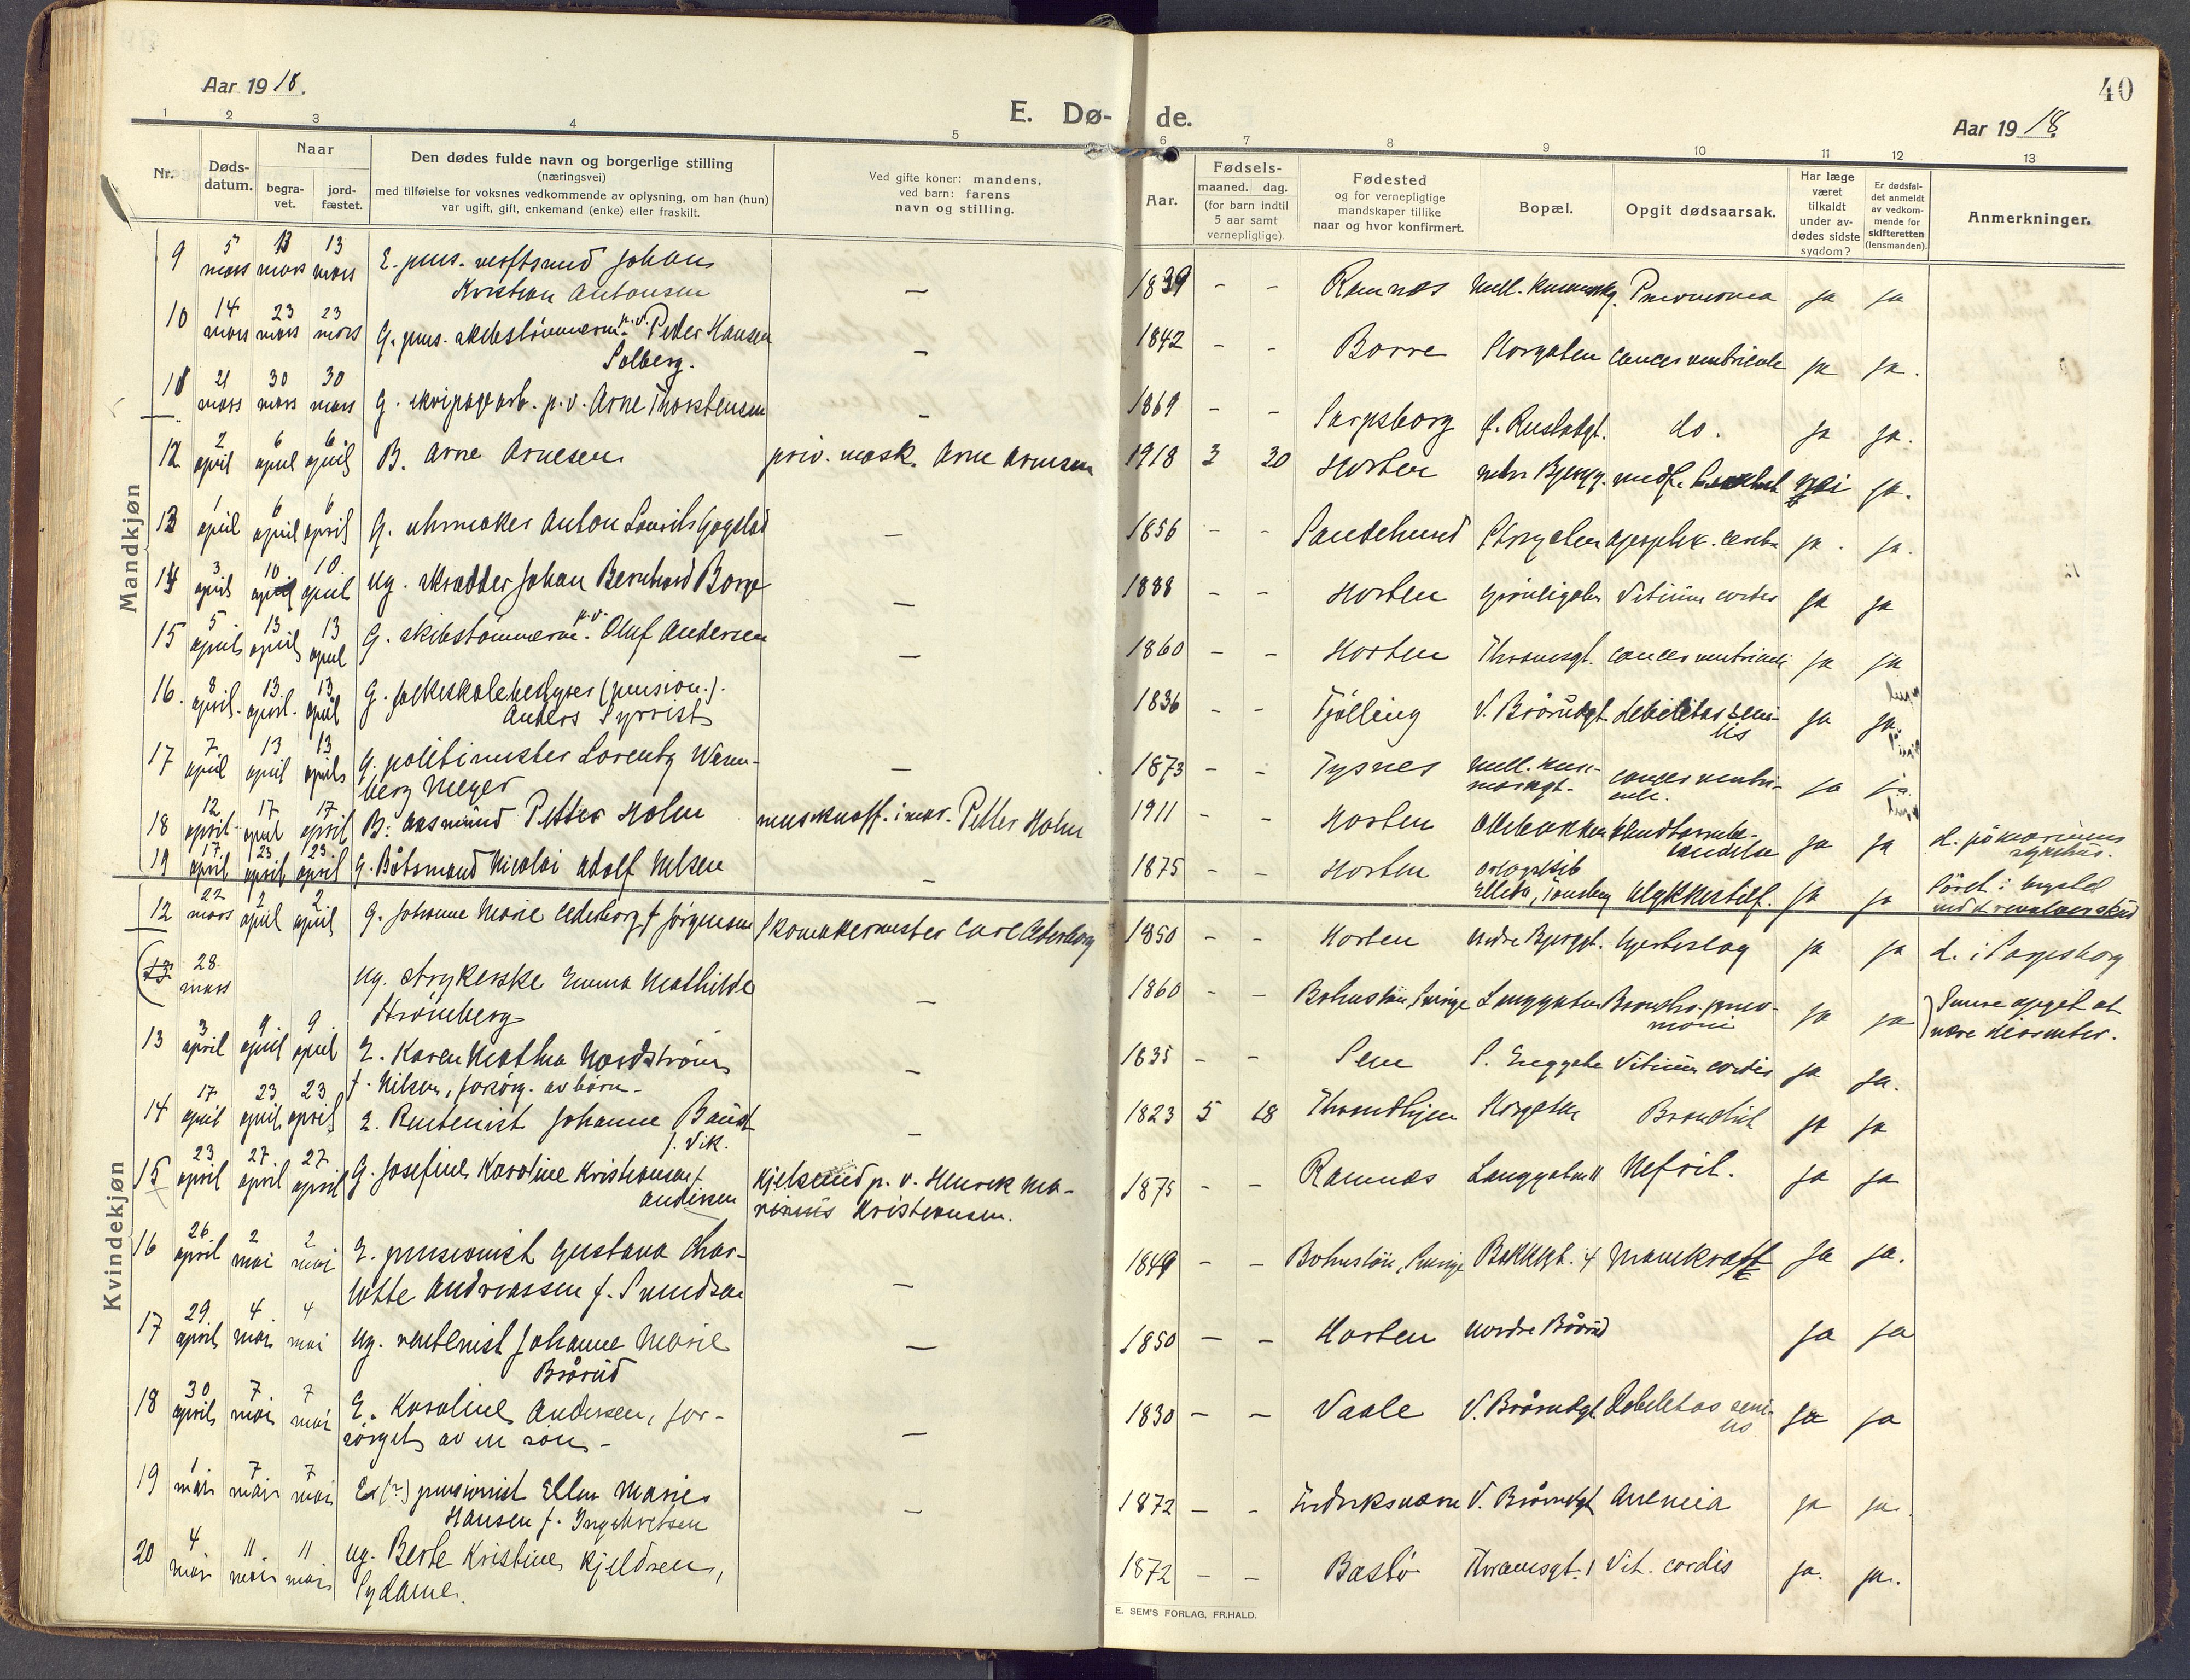 Aar 1918.
E. Dø- de.
Aar 1918.
40
1 2 3 4 5 6 7 8 9 10 11 12 13
Nr.
Døds-
datum.
Naar
begra-
vet.
jord-
fæstet.
Den dødes fulde navn og borgerlige stilling
(næringsvei)
med tilføielse for voksnes vedkommende av oplysning, om han (hun)
var ugift, gift, enkemand (enke) eller fraskilt.
Ved gifte koner: mandens,
ved barn: farens
navn og stilling.
Aar.
Fødsels-
maaned. dag.
(for barn indtil
5 aar samt
vernepligtige)
Fødested
og for vernepligtige
mandskaper tillike
naar og hvor konfirmert.
Bopæl.
Opgit dødsaarsak.
Har læge
været
tilkaldt
under av-
dødes sidste
sygdom?
Er dødsfal-
det anmeldt
av vedkom-
mende for
skifteretten
(lensmanden).
Anmerkninger.
Mandkjøn
9 5 mars 13 mars 13 mars E. pens. verftsmd Johan
Kristian Antonsen — 1839 - - Ramnæs Pneumonia ja ja
10 14 mars 23 mars 23 mars G. pens. skibstømmerm. p.v. Peder Hansen
Solberg. — 1842 - - Borre Storgaten cancer ventriculi ja ja.
11 21 mars 30 mars 30 mars G. p.v. Arne Thorstensen — 1869 - - Sarpsborg f. Rustadgt. do. ja ja.
12 2 april 6 april 6 april B. Arne Arnesen priv. mask. Arne Arnesen 1918 3 30 Horten medf. nei ja.
13 1 april 6 april 6 april G. uhrmaker Anton Laurits Gogstad — 1856 - - Sandehered Storgaten apoplex. cerebri ja. ja.
14 3 april 10 april 10 april ug. skrædder Johan Bernhard Borge — 1888 - - Horten Vitium cordis ja ja
15 5 april 13 april 13 april G. skibstømmerm. p.v. Oluf Andersen — 1860 - - Horten Thranesgt. cancer ventriculi ja ja
16. 8 april. 13. april. 13 april G. folkeskolebestyrer (pension.).
Anders Syrrist 1836 - - Tjølling V. Brårudgt. debilitas seni-
lis ja ja.
17 7. april 13 april 13 april G. politimester Lorentz Wesen-
berg Meyer — 1873 - - Tysnes cancer ventri-
culi. ja ja.
18 12 april 17 april 17 april B. Aasmund Petter Holm Petter Holm 1911 - - Horten Ollebakken Blindtarmbe-
tændelse ja ja d. på marinens
sykehus.
19 17 april 23 april 23 april G. Båtsmand Nicolai Adolf Nilsen — 1875 - - Horten orlogsskib
Ellida, Tønsberg Ulykkestilf. ja ja Såret i brystet
ved revolverskud
Kvindekjøn
12 22 mars 2 april 2 april G. Johanne Marie Cederborg f. Jørgensen Skomakermester Carl Cederborg 1850 - - Horten Nedre Bjerggt. Hjerteslag ja ja d. i Sarpsborg
(13 28 mars ug. strykerske Emma Mathilde
Strömberg — 1860 - - Bohuslän, Sverige Langgaten Broncho-pneu-
moni ja ja Senere opgit at
være dissenter.
13 3 april 9 april 9 april E. Karen Mathea Nordstrøm
f. Nilsen, forsørg. av børn. — 1835 - - Sem S. Enggate Vitium cordis ja ja.
14 17 april 23 april 23 april E. Rentenist Johanne Bandt
f. Vik. — 1823 5 18 Throndhjem Storgaten Bronchit ja ja
15 23 april 27 april 27 april G. Josefine Karoline Kristiansen f.
Andersen Kjelsmd p. v. Henrik Ma-
rinius Kristiansen. 1875 - - Ramnæs Langgaten 11 Nefrit. ja ja
16 26. april 2 mai 2 mai E. pensionist Gustava Char-
lotte Andreassen f. Svendsen — 1849 - - Bohuslän, Sverige Bakkegt. 4 Marekræft ja ja.
17 29. april 4. mai 4 mai ug. rentenist Johanne Marie
Brårud — 1850 - - Horten Nordre Brårud ja ja
18 30 april 7. mai 7 mai E. Karoline Andersen, for-
sørget av en søn. — 1830 - - Vaale V. Brårudgt. Debilitas seni-
lis ja ja
19 1 mai 7 mai 7 mai E. (?) pensionist Ellen Marie
Hansen f. Ingebretsen — 1872 - - Fredriksværn V. Brårudgt Anemia ja ja.
20 4 mai 11 mai 11 mai ug. Berte Kristine Kjeldsen,
Sydame. 1872 - - Bastø Thranesgt. 1 Vit. cordis ja. ja.
E. SEM'S FORLAG, FR.HALD.